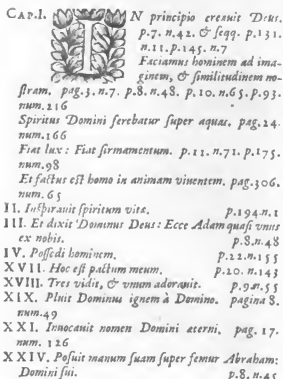 CAP.I. IN principio creauit Deus.
p.7. n.42. & seqq. p.131.
n.11. p.145. n.7
Faciamus hominem ad ima-
ginem, & similitudinem no-
stram. pag.3. n.7. p.8. n.48. p.10. n.65. p.93.
num.216
Spiritus Domini ferebatur super aquas. pag.24.
num.166
Fiat lux: Fiat firmamentum. p.11. n.71. p.175.
num.98
Et factus est homo in animam viuentem. pag.306.
num.65
II. Inspirauit spiritum vitæ. p.194. n.1
III. Et dixit Dominus Deus: Ecce Adam quasi vnus
ex nobis. p.8. n.48
IV. Possedi hominem. p.22. n.155
XVII. Hoc est pactum meum. p.20. n.143
XVIII. Tres vidit, & vnum adorauit. p.9. n.55
XIX. Pluit Dominus ignem à Domino. pagina 8.
num.49
XXI. Inuocauit nomen Domini æterni. pag. 17.
num. 126
XXIV. Posuit manum suam super femur Abraham:
Domini sui. p.8. n.45